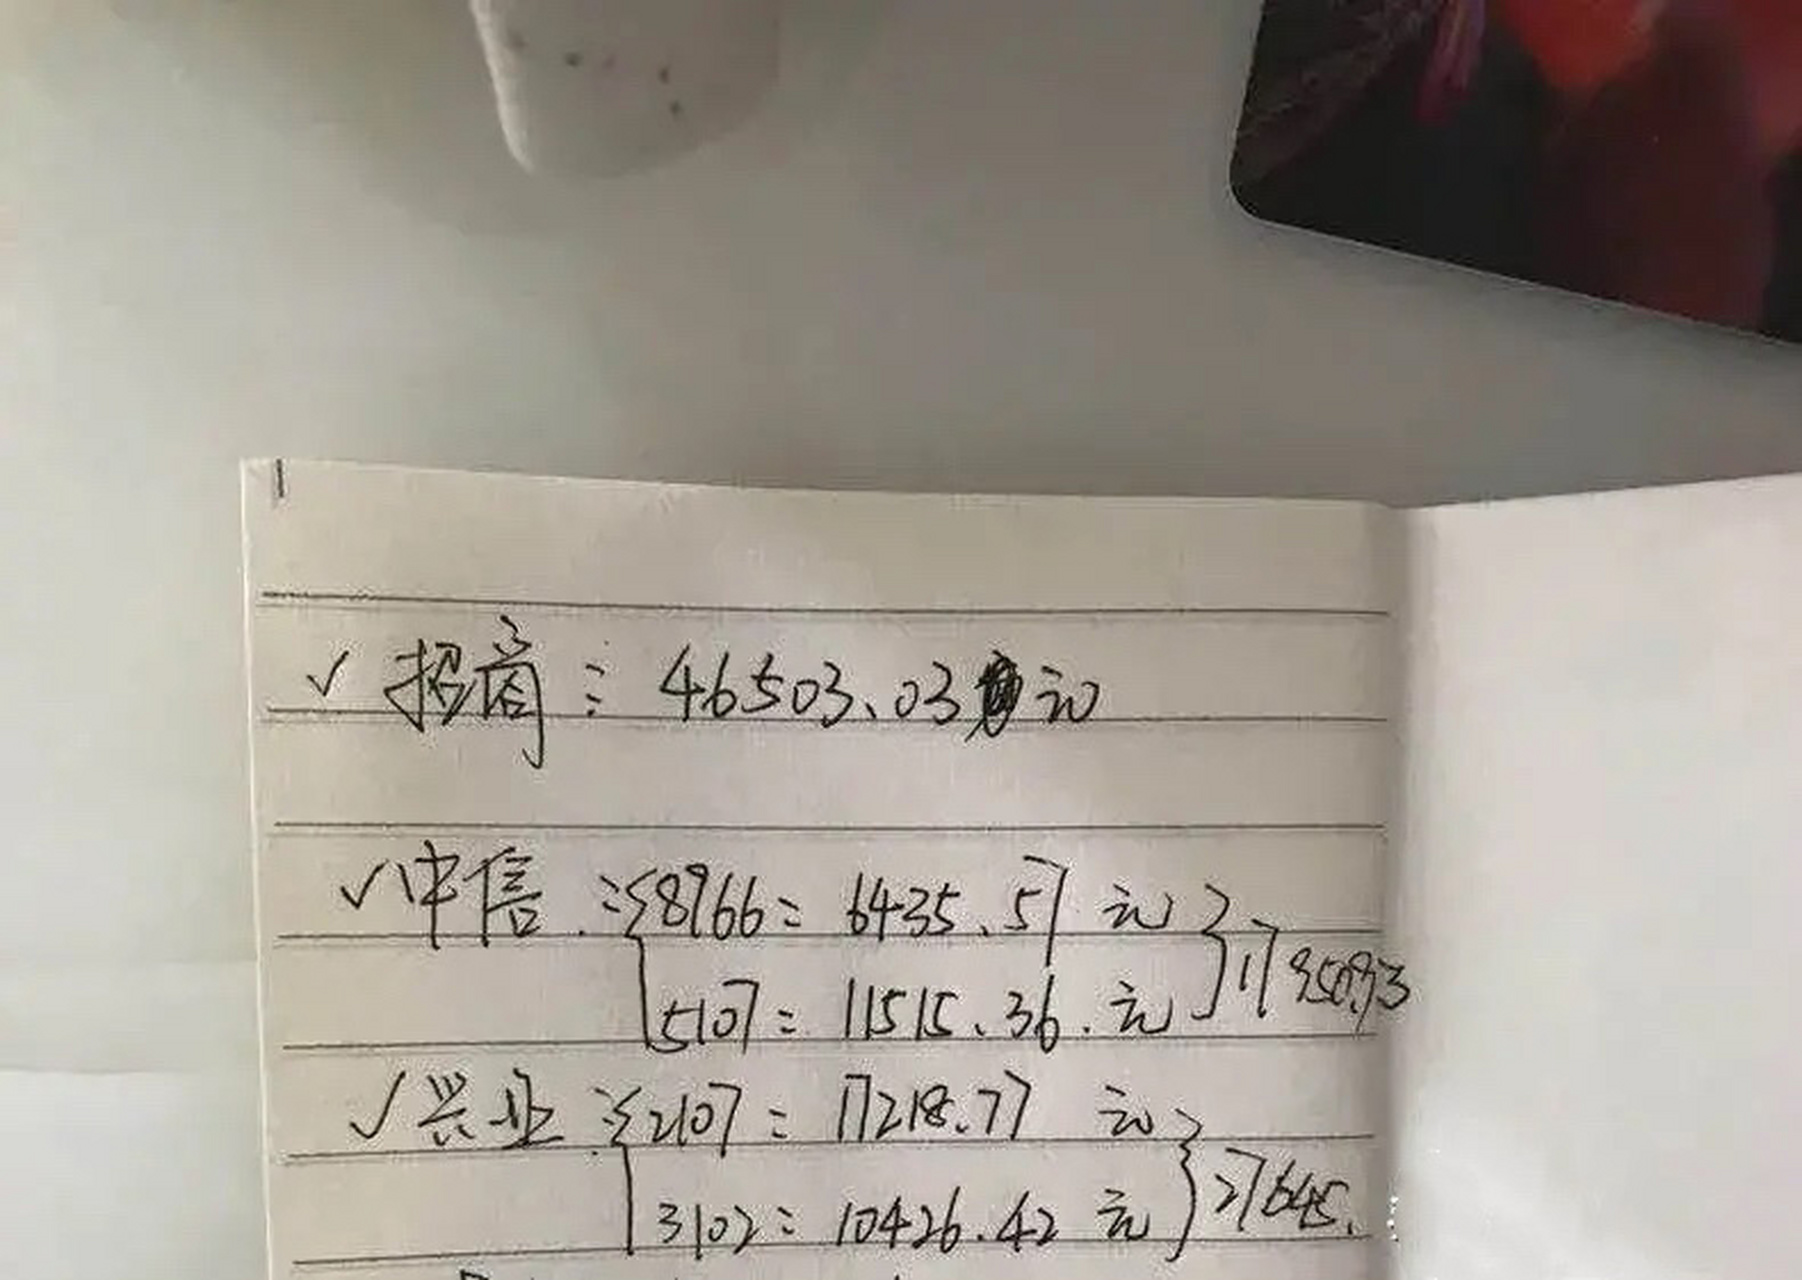 √ 招商: 46503.03 元
√ 中信: 8966: 6435.57 元
5107: 11515.36.元 } 17950.93
√ 兴业: 2107: 17218.77 元
3102: 10426.42 元 } 27645.